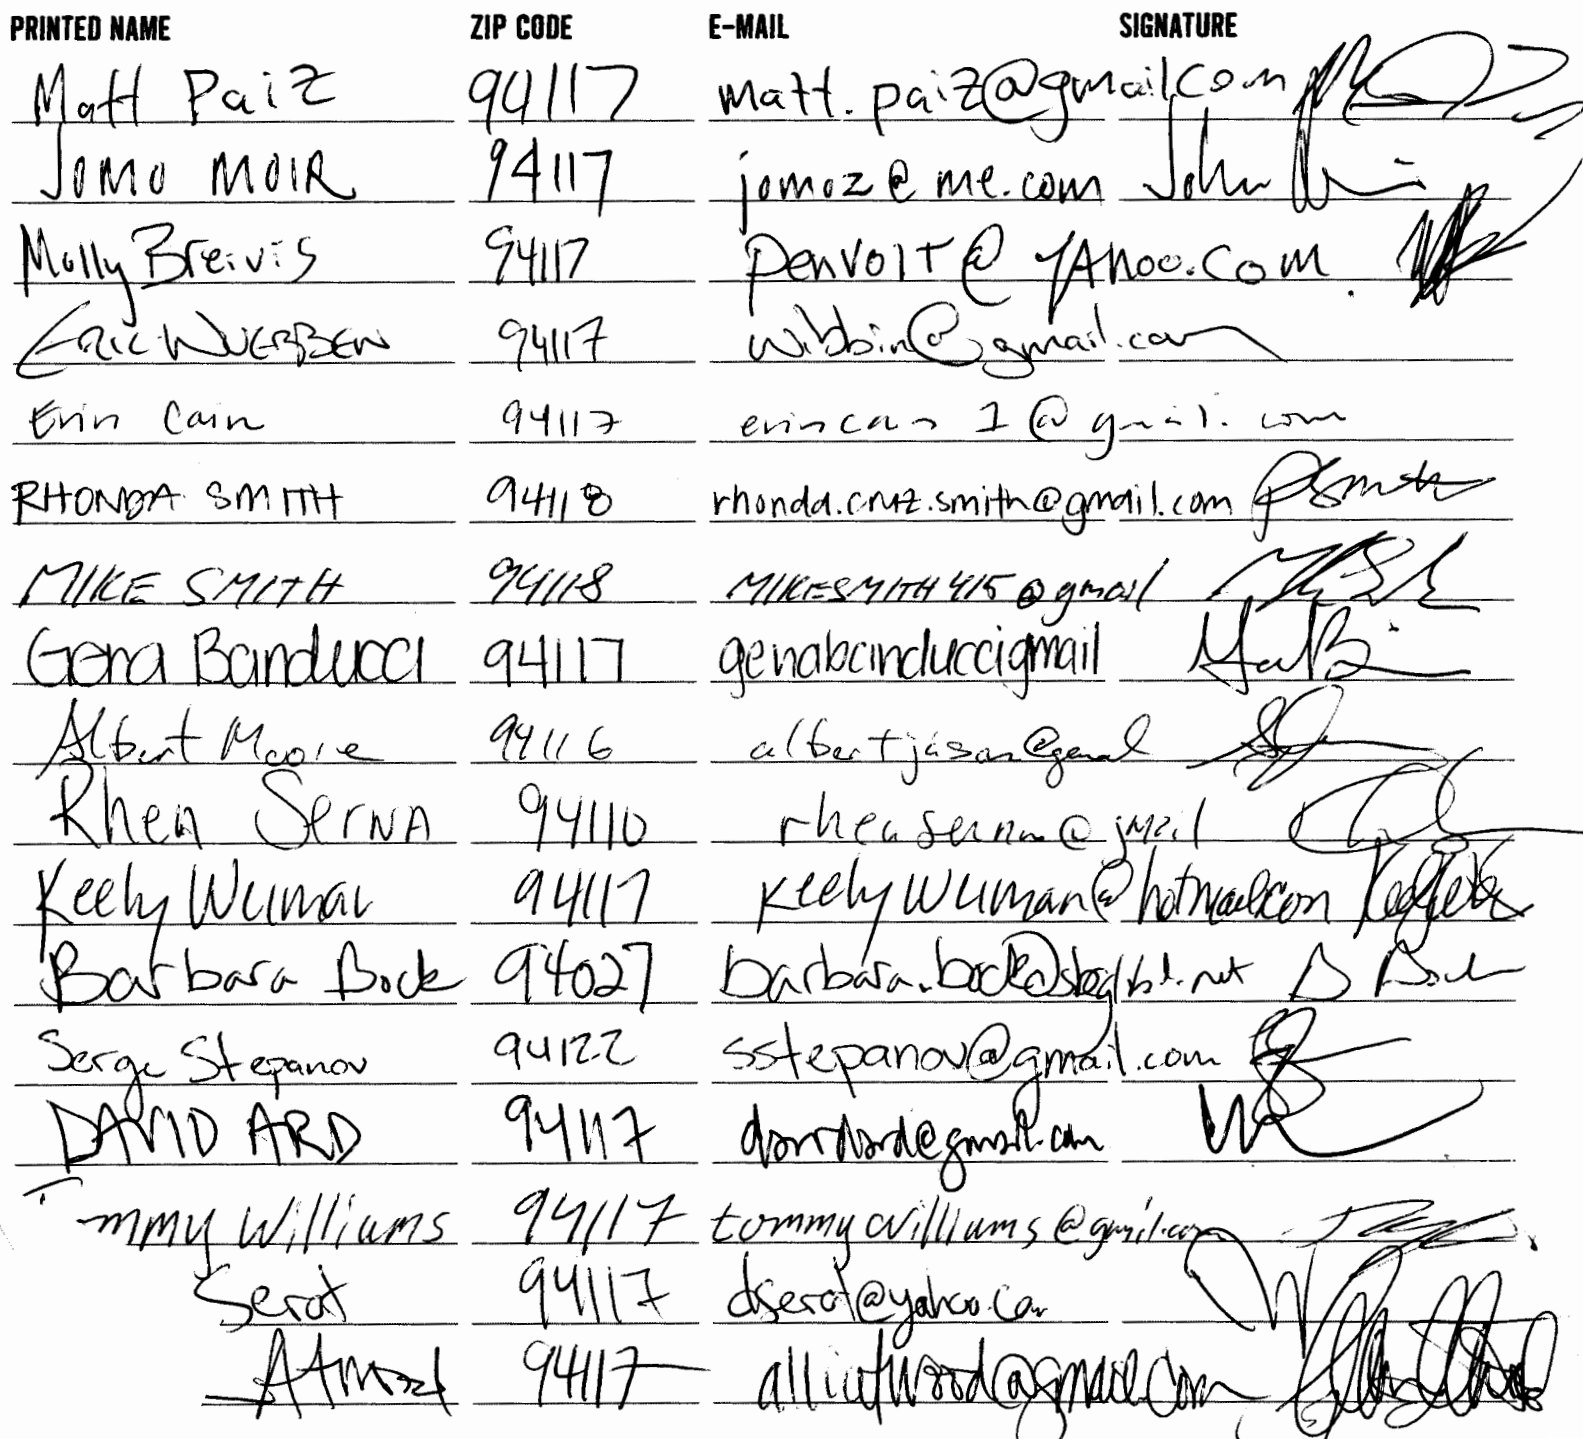 PRINTED NAME ZIP CODE E-MAIL SIGNATURE
Matt Paiz 94117 matt.paiz@gmail.com
JOMO MOIR 94117 jomoz@me.com
Molly Breivis 94117 penvolt@YAHOO.COM
ERIC WUERBBEN 94117 wibbin@gmail.com
Erin Cain 94117 erincain1@gmail.com
RHONDA SMITH 94118 rhonda.cruz.smith@gmail.com RSmith
MIKE SMITH 94118 MIKESMITH415@gmail
Gena Banducci 94117 genabanduccigmail
Albert Moore 94116
Rhea SerNA 94110 rheaserna@gmail
Keely 94117
Barbara Bock 94027 barbara.bock@sbcglobal.net B Bock
Serge Stepanov 94122 sstepanov@gmail.com
DAVID ARD 94117
mmy Williams 94117 tommywilliams@gmail.com
Serot 94117 dserot@yahoo.com
Atwood 94117 alliatwood@gmail.com